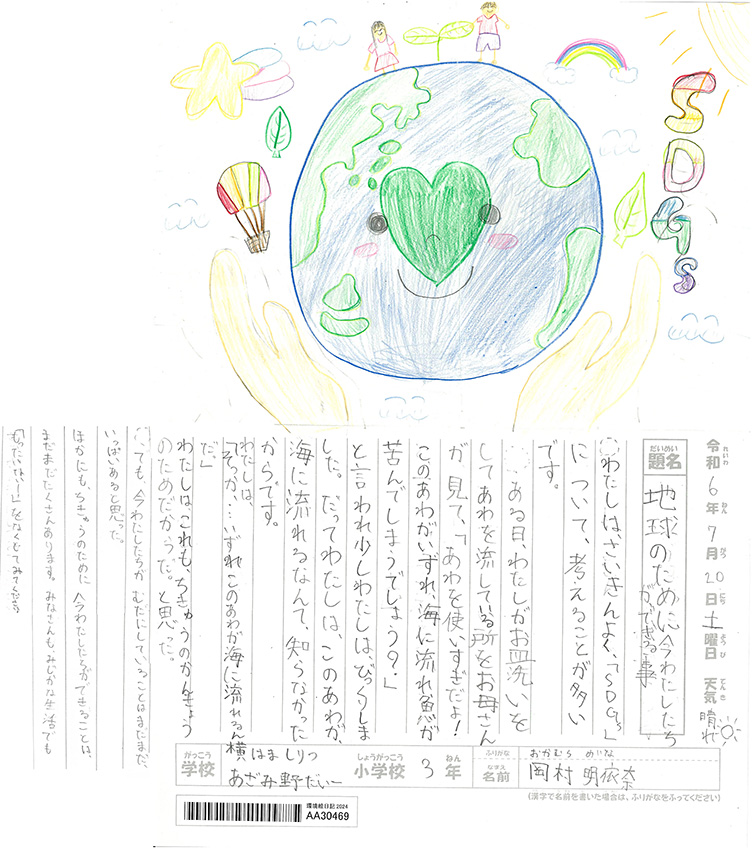 SDGs
令和6年7月20日土曜日 天気 晴れ
れいわ ねん がつ にち ようび てんき
だいめい
題名
地球のために今わたしたち
ができる事
わたしは、さいきんよく、「SDGs」
について、考えることが多い
です。
ある日、わたしがお皿洗いを
してあわを流している所をお母さん
が見て、「あわを使いすぎだよ!
このあわがいずれ、海に流れ魚が
苦んでしまうでしょう?」
と言われ少しわたしは、びっくりしま
した。だってわたしは、このあわが、
海に流れるなんて、知らなかった
からです。
わたしは、
「そっか、…いずれこのあわが海に流れるん
だ。」
わたしは、これも、ちきゅうのかんきょう
のためだからだ。と思った。
でも、今わたしたちが むだにしていることはまだまだ、
いっぱいあると思った。
ほかにも、ちきゅうのために今わたしたちができることは、
まだまだたくさんあります。みなさんも、みじかな生活でも
「もったいない」をなくしてみてください
がっこう
学校
横はましりつ
あざみ野だい一
しょうがっこう
小学校
3年
ねん
ふりがな
おかむら めいな
なまえ
名前
岡村 明依奈
(漢字で名前を書いた場合は、ふりがなをふってください)
環境絵日記2024
AA30469